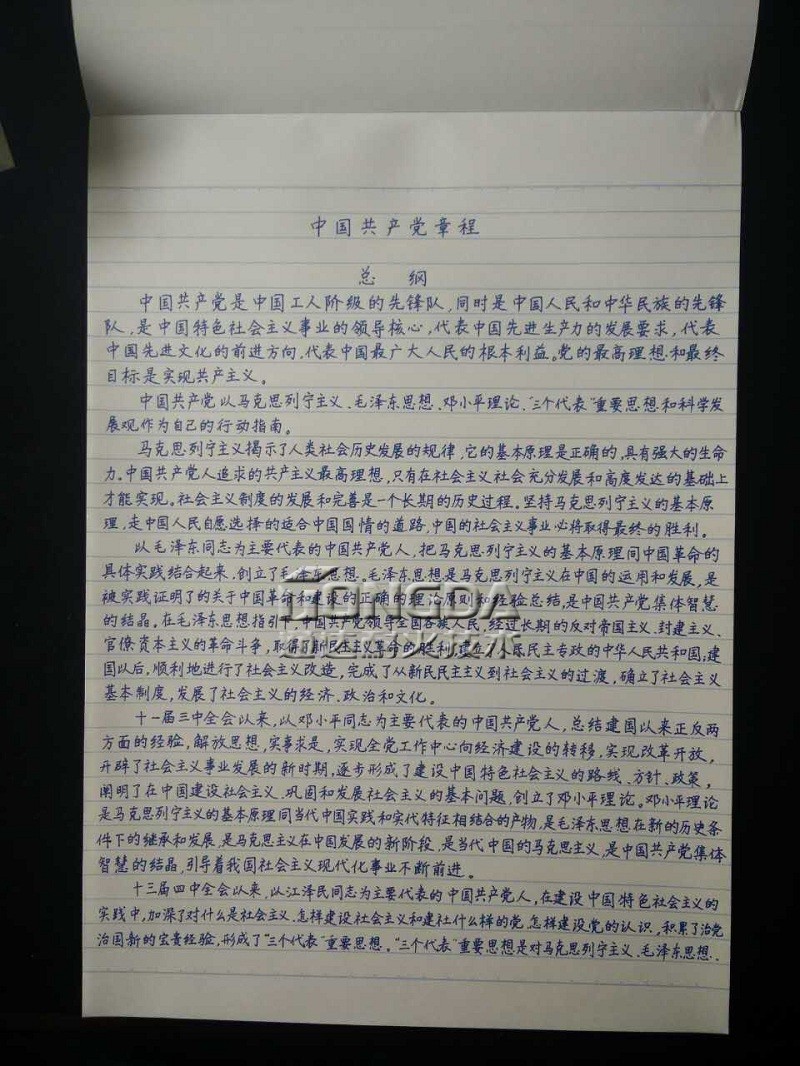 中国共产党章程
总 纲
中国共产党是中国工人阶级的先锋队,同时是中国人民和中华民族的先锋
队,是中国特色社会主义事业的领导核心,代表中国先进生产力的发展要求,代表
中国先进文化的前进方向,代表中国最广大人民的根本利益。党的最高理想和最终
目标是实现共产主义。
中国共产党以马克思列宁主义、毛泽东思想、邓小平理论、“三个代表”重要思想和科学发
展观作为自己的行动指南。
马克思列宁主义揭示了人类社会历史发展的规律,它的基本原理是正确的,具有强大的生命
力。中国共产党人追求的共产主义最高理想,只有在社会主义社会充分发展和高度发达的基础上
才能实现。社会主义制度的发展和完善是一个长期的历史过程。坚持马克思列宁主义的基本原
理,走中国人民自愿选择的适合中国国情的道路,中国的社会主义事业必将取得最终的胜利。
以毛泽东同志为主要代表的中国共产党人,把马克思列宁主义的基本原理同中国革命的
具体实践结合起来,创立了毛泽东思想。毛泽东思想是马克思列宁主义在中国的运用和发展,是
被实践证明了的关于中国革命和建设的正确的理论原则和经验总结,是中国共产党集体智慧
的结晶。在毛泽东思想指引下,中国共产党领导全国各族人民,经过长期的反对帝国主义、封建主义、
官僚资本主义的革命斗争,取得了新民主主义革命的胜利,建立了人民民主专政的中华人民共和国;建
国以后,顺利地进行了社会主义改造,完成了从新民民主主义到社会主义的过渡,确立了社会主义
基本制度,发展了社会主义的经济、政治和文化。
十一届三中全会以来,以邓小平同志为主要代表的中国共产党人,总结建国以来正反两
方面的经验,解放思想,实事求是,实现全党工作中心向经济建设的转移,实现改革开放,
开辟了社会主义事业发展的新时期,逐步形成了建设中国特色社会主义的路线、方针、政策,
阐明了在中国建设社会主义、巩固和发展社会主义的基本问题,创立了邓小平理论。邓小平理论
是马克思列宁主义的基本原理同当代中国实践和实代特征相结合的产物,是毛泽东思想在新的历史条
件下的继承和发展,是马克思主义在中国发展的新阶段,是当代中国的马克思主义,是中国共产党集体
智慧的结晶,引导着我国社会主义现代化事业不断前进。
十三届四中全会以来,以江泽民同志为主要代表的中国共产党人,在建设中国特色社会主义的
实践中,加深了对什么是社会主义、怎样建设社会主义和建社什么样的党、怎样建设党的认识,积累了治党
治国新的宝贵经验,形成了“三个代表”重要思想。“三个代表”重要思想是对马克思列宁主义、毛泽东思想、
DONGDA